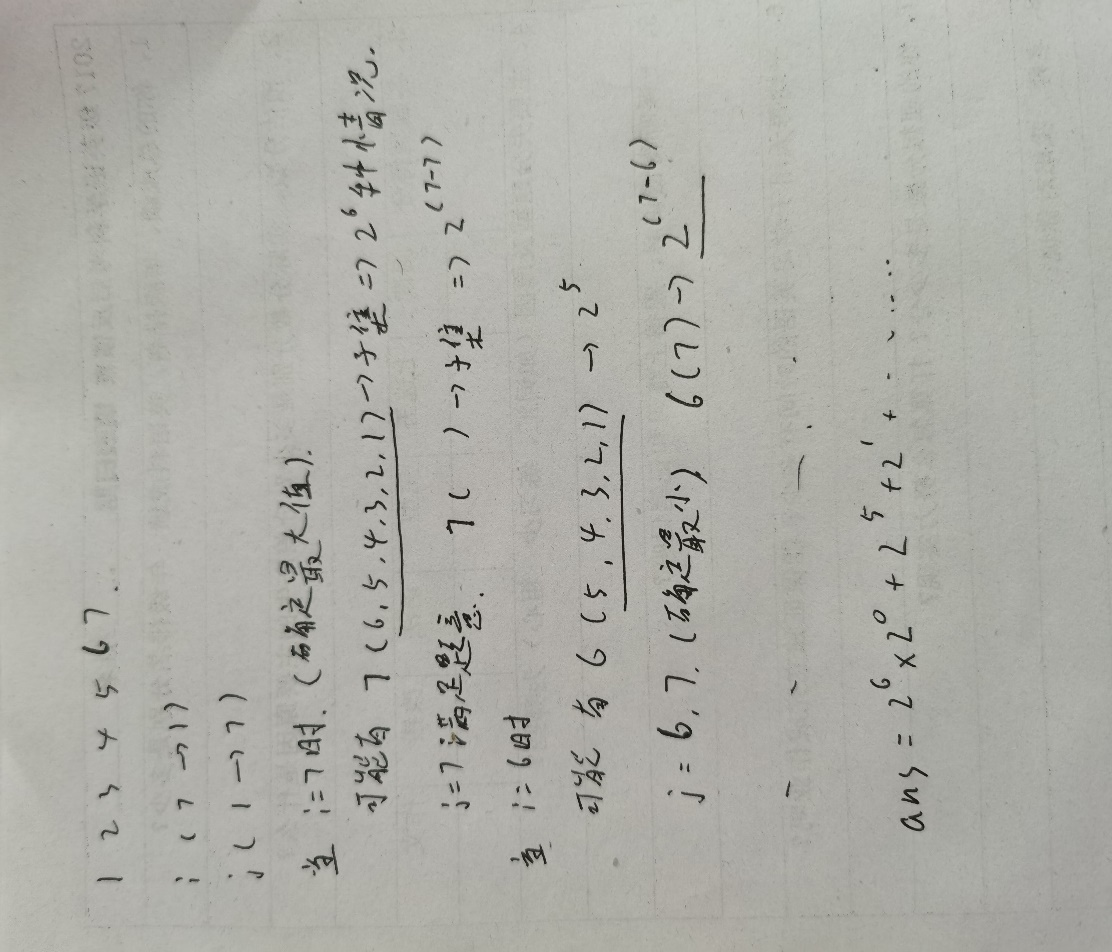 1 2 3 4 5 6 7.
i (7 → 1)
j (1 → 7)
当 i=7时. (确定最大值).
可能有 7 (6,5,4,3,2,1) → 子集 => 2^6 种情况.
j=7 满足题意. 7( ) → 子集 => 2^(7-7)
当 i=6时
可能有 6 (5,4,3,2,1) → 2^5
j = 6, 7. (确定最小) 6(7) → 2^(7-6)
ans = 2^6 × 2^0 + 2^5 + 2^1 + ......